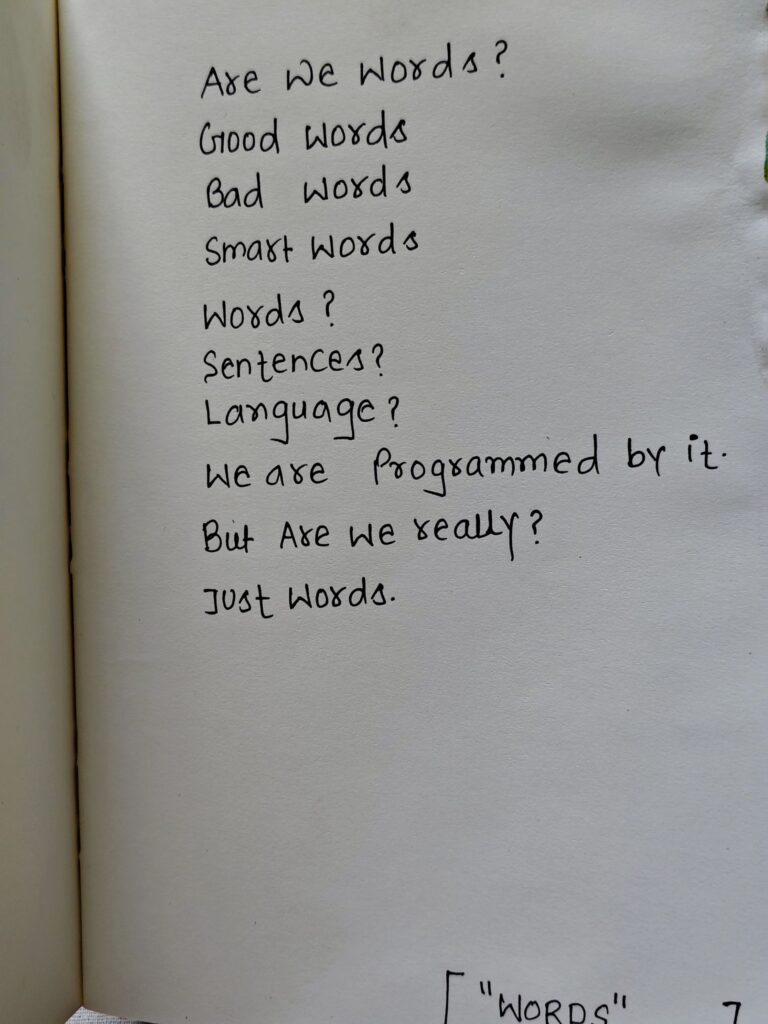 Are we words?
Good words
Bad words
Smart words
Words?
Sentences?
Language?
We are Programmed by it.
But Are we really?
Just words.
["WORDS" 7